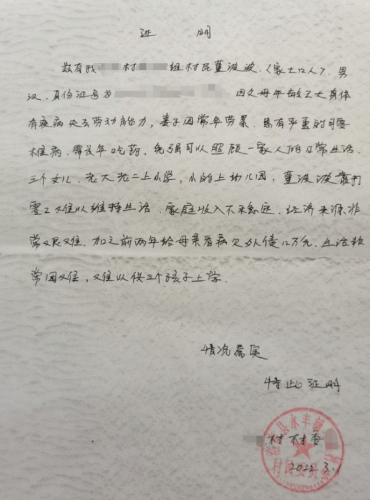 证 明
兹有我村组村民董波波（家中口人）男
汉，身份证号为 因父母年龄已大身体
有疾病失去劳动能力，妻子因常年劳累，患有严重的
椎病，需长年吃药，免强可以照顾一家人的日常生活，
三个女儿，老大老二上小学，小的上幼儿园，董波波靠打
零工难以维持生活，家庭收入不来，经济来源非
常艰难，加之前两年给母亲看病欠外债12万元，生活较
常困难，难以供三个孩子上学。
情况属实
特此证明
村村委
2022.3.1